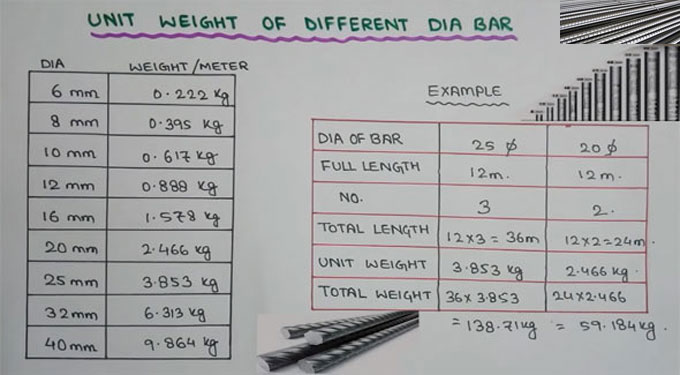 UNIT WEIGHT OF DIFFERENT DIA BAR
DIA WEIGHT/METER
6 mm 0.222 kg
8 mm 0.395 kg
10 mm 0.617 kg
12 mm 0.888 kg
16 mm 1.578 kg
20 mm 2.466 kg
25 mm 3.853 kg
32 mm 6.313 kg
40 mm 9.864 kg
EXAMPLE
DIA OF BAR 25 ϕ 20 ϕ
FULL LENGTH 12m. 12m.
NO. 3 2.
TOTAL LENGTH 12×3 = 36m 12×2=24m.
UNIT WEIGHT 3.853 kg 2.466 kg.
TOTAL WEIGHT 36×3.853 24×2.466
=138.71kg = 59.184kg.